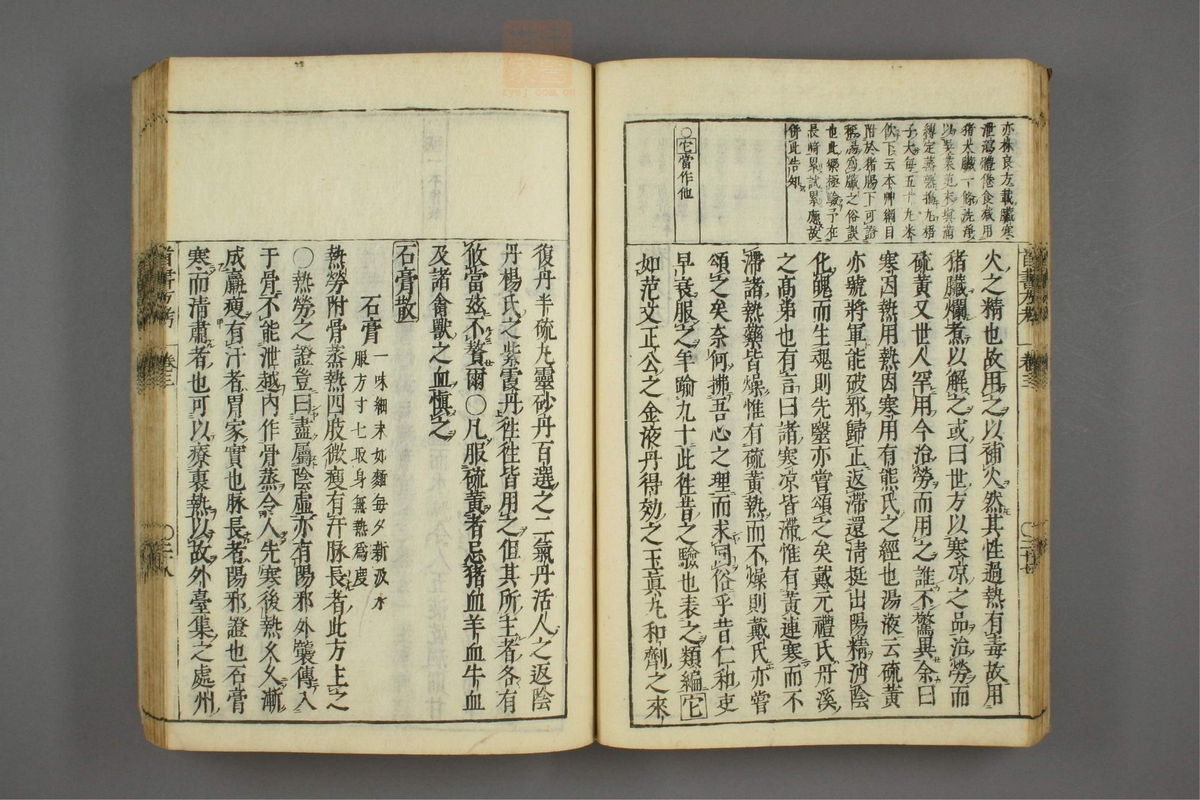 亦株良方載臟寒
泄瀉體倦食減用
猪大臟一條洗淨
以吳茱萸末與滿
縛定蒸熟搗丸梧
子大每五十丸米
飲下云本艸綱目
附於猪腸下可證
稱為臟之俗誤
也此藥極驗予在
長崎累試累應故
併此告知
○它當作他
火之精也故用之以補火然其性過熱有毒故用
猪臟爛煮以解之或曰世方以寒凉之品治勞而
硫黃又世人罕用今治勞而用之誰不驚異余曰
寒因熱用熱因寒用有熊氏之經也湯液云硫黃
亦號將軍能破邪歸正返滯還清挺出陽精消陰
化魄而生魂則先醫亦嘗頌之矣戴元禮氏丹溪
之高弟也有言曰諸寒凉皆滯惟有黃連寒而不
滯諸熱藥皆燥惟有硫黃熱而不燥則戴氏亦嘗
頌之矣奈何拂吾心之理而求同俗乎昔仁和吏
早衰服之年踰九十此往昔之驗也表之類編它
如范文正公之金液丹得効之玉真丸和劑之來
醫書方考 卷三 ○二十七
復丹半硫丸靈砂丹百選之二氣丹活人之返陰
丹楊氏之紫霞丹往往皆用之但其所主者各有
攸當茲不贅爾○凡服硫黃者忌猪血羊血牛血
及諸禽獸之血愼之
石膏散
石膏一味細末如麵每夕新汲水
服方寸七取身無熱為度
熱勞附骨蒸熱四肢微瘦有汗脉長者此方主之
○熱勞之證豈曰盡屬陰虛亦有陽邪外襲傳入
于骨不能泄越內作骨蒸令人先寒後熱久久漸
成羸瘦有汗者胃家實也脉長者陽邪證也石膏
寒而清肅者也可以療裏熱以故外臺集之處州
醫書方考 卷三 ○二十八